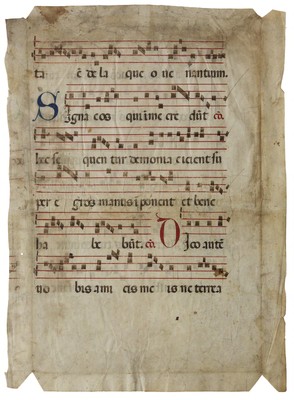 ta ē de la que o ue nantium.
Signa eos qui in me cre dūt cō.
hec se quen tur demonia eicient su
per e gros manus īponent et bene
ha be būt. cō. Dico autē
uo bis ami cis me is ne terrea